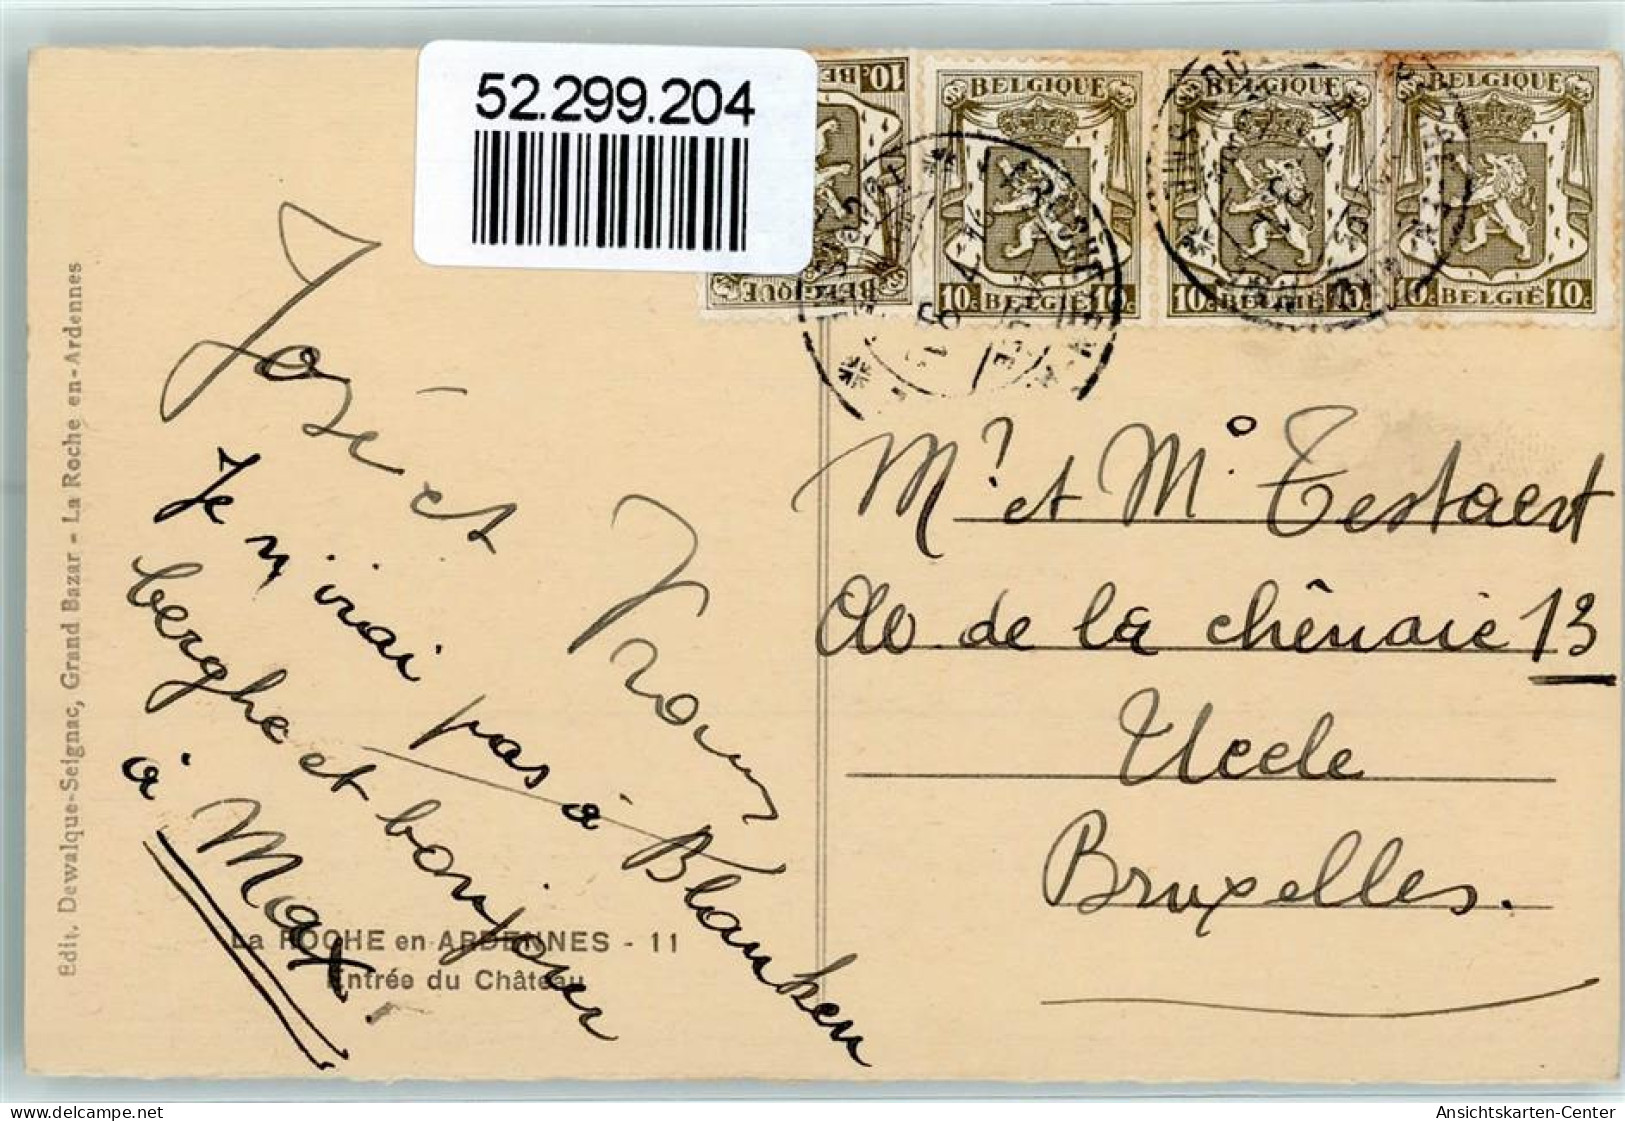 52.299.204
BELGIQUE
BELGIQUE
BELGIQUE
10
BE
BELGIQUE
10c BELGIË 10c
10c BELGIË 10c
10c BELGIË 10c
José et
Je n'irai pas à Blanken
berghe et bonjour
à Max.
Mr et Me Testaert
de la chênaie 13
Uccle
Bruxelles.
La ROCHE en ARDENNES - 11
Entrée du Château
Edit. Dewalque-Seignac, Grand Bazar - La Roche en-Ardennes
www.delcampe.net
Ansichtskarten-Center